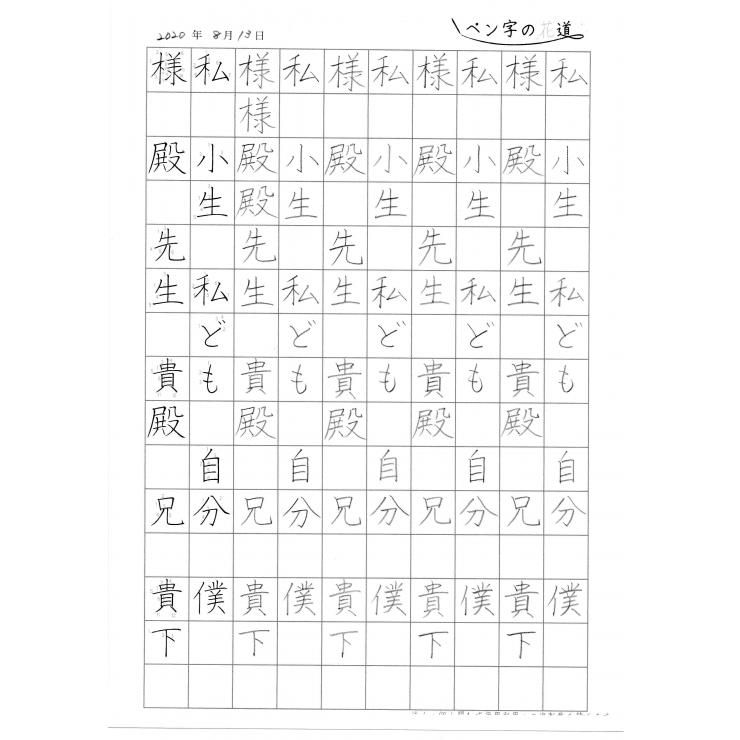 2020年8月13日
ペン字の花道
私 小生 私ども 自分 僕
様 殿 先生 貴殿 兄 貴下
私 小生 私ども 自分 僕
様 殿 先生 貴殿 兄 貴下
私 小生 私ども 自分 僕
様 殿 先生 貴殿 兄 貴下
私 小生 私ども 自分 僕
様様 殿殿 先生 貴殿 兄 貴下
私 小生 私ども 自分 僕
様 殿 先生 貴殿 兄 貴下